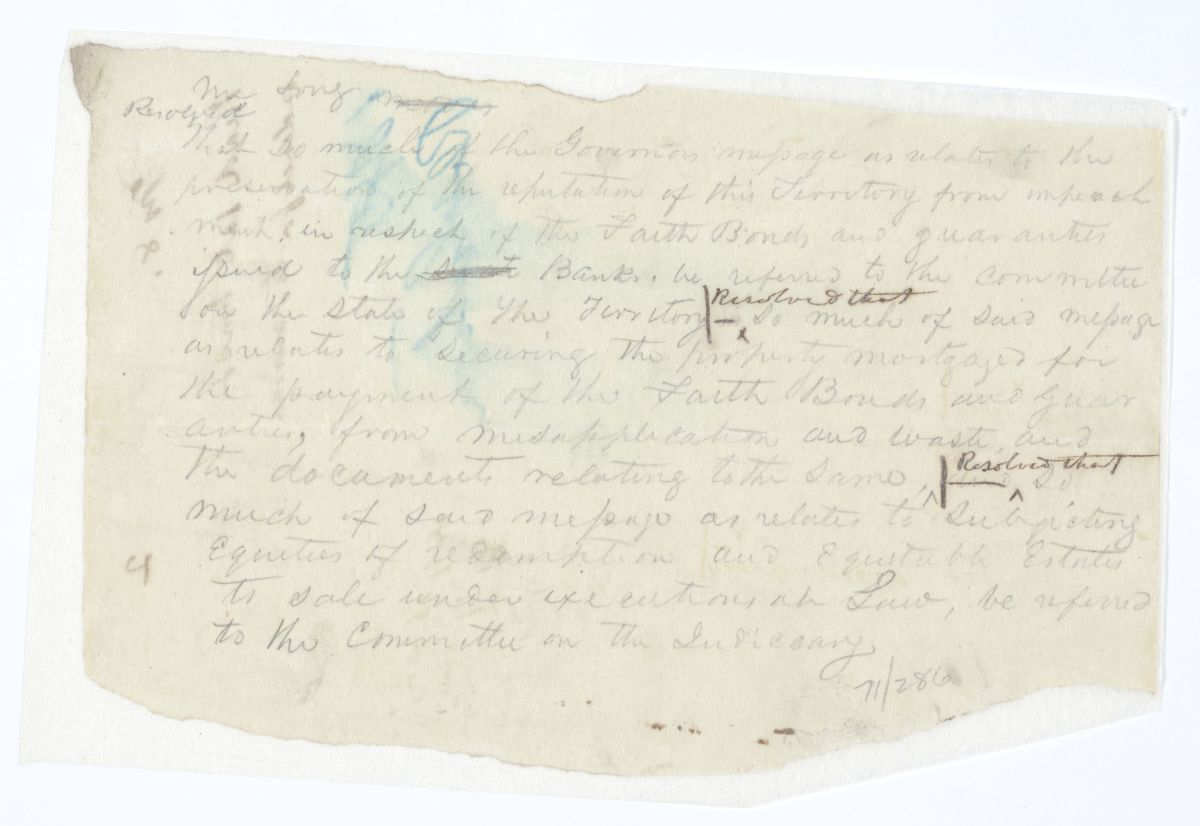 Mr Long
Resolved
That so much of the Governors message as relates to the
preservation of the reputation of this Territory from impeach
ment, in respect of the Faith Bonds and guaranties
issued to the Banks. be referred to the committee
on the State of the Territory Resolved that So much of said message
as relates to securing the property mortgaged for
the payment of the Faith Bonds and Guar
anties, from misapplication and waste, and
the documents relating to the same, Resolved that So
much of said message as relates to Subjecting
Equities of redemption and Equitable Estates
to sale under executions at Law, be referred
to the Committee on the Judiciary
71/286